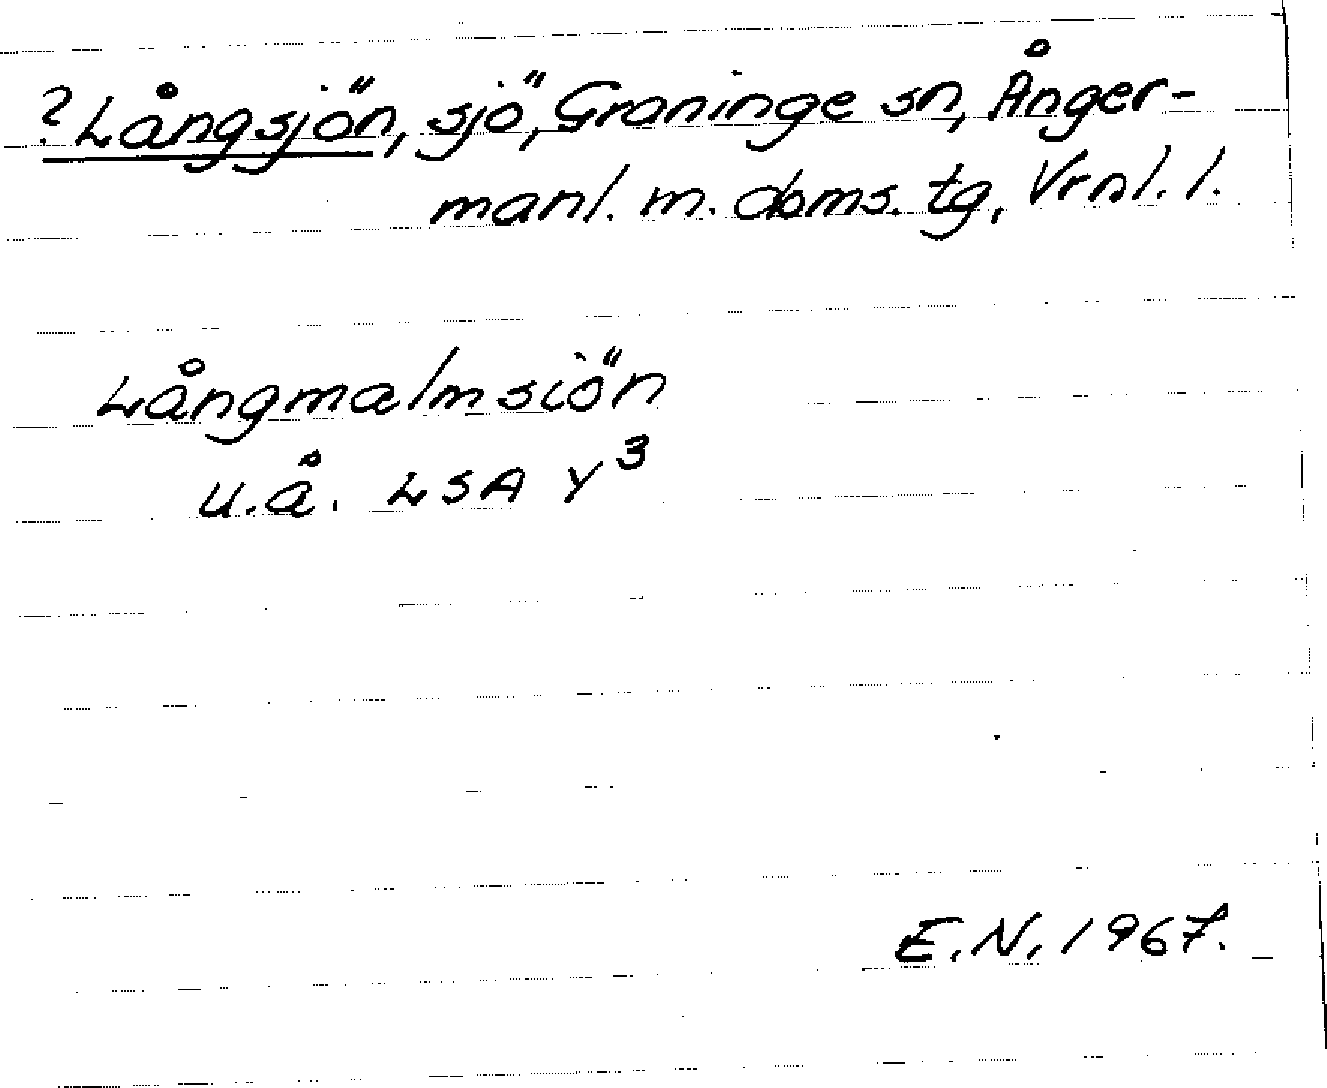 ? Långsjön, sjö, Graninge sn, Ånger-
manl. m. doms. tg, Vrnl. l.
Långmalmsiön
u.å. LSA Y³
E.N. 1967.